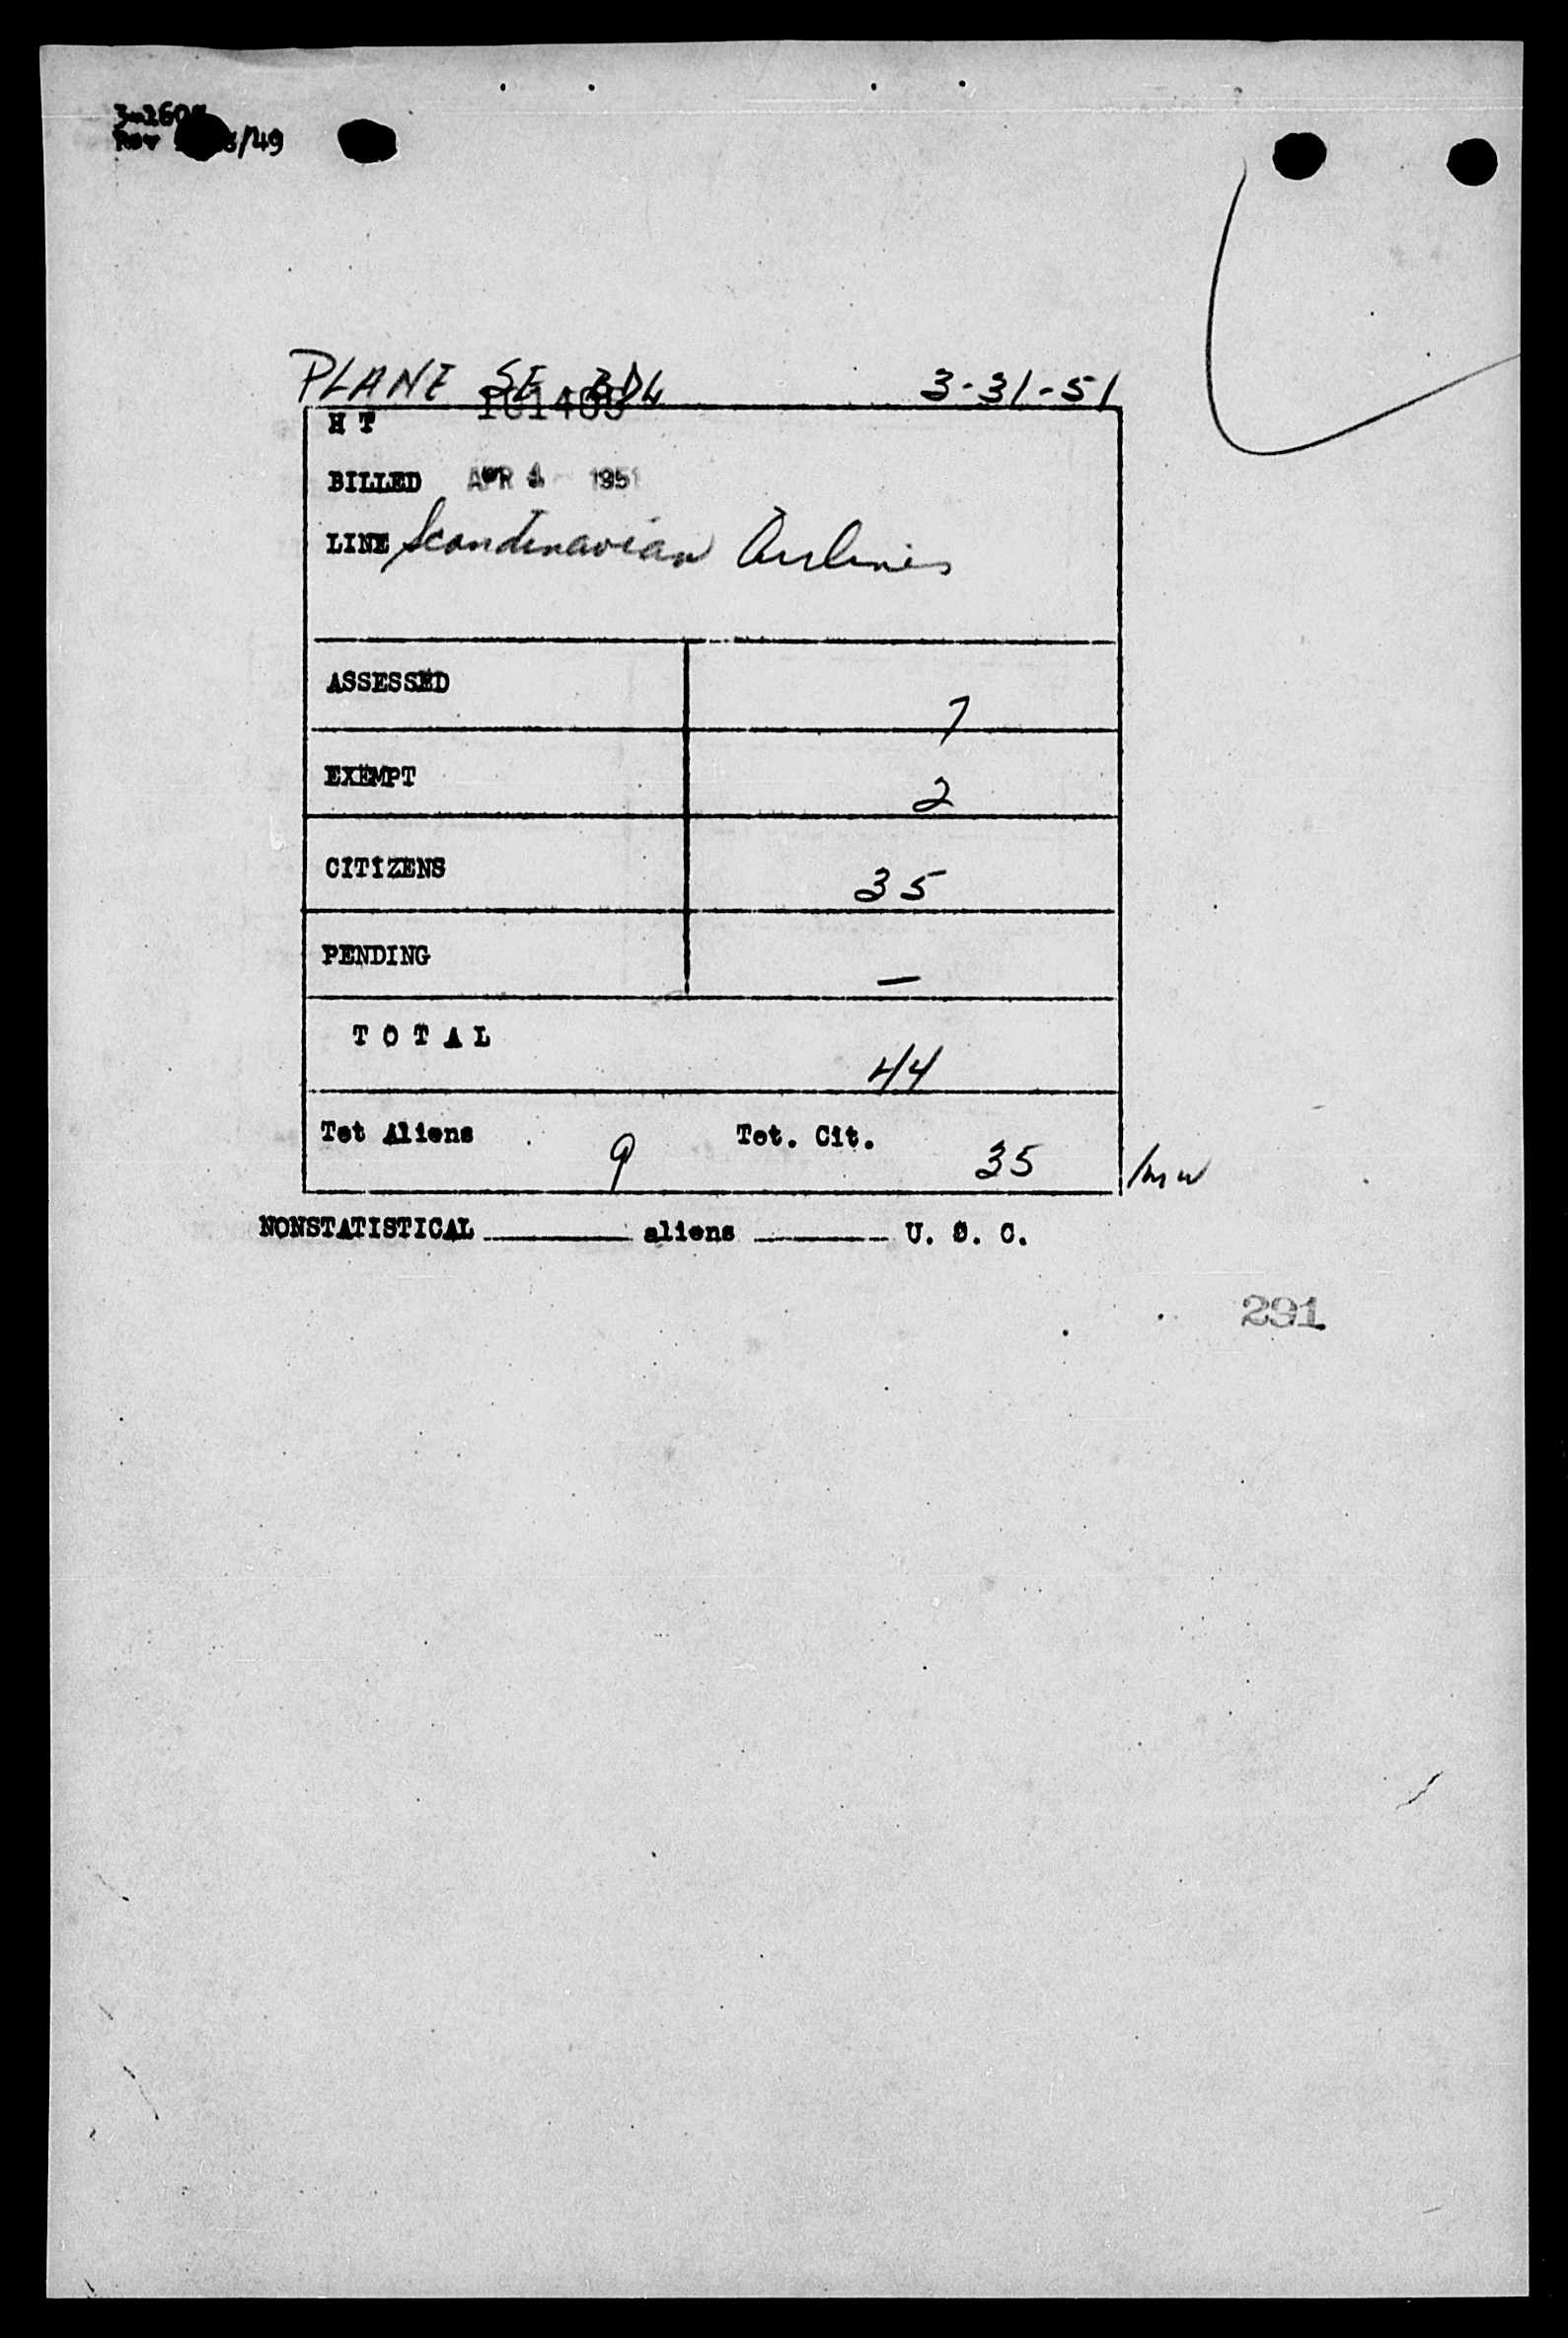 PLANE SE BDL 3-31-51
H T
BILLED APR 1951
LINE Scandinavian Airlines
ASSESSED 7
EXEMPT 2
CITIZENS 35
PENDING —
T O T A L 44
Tot Aliens 9 Tot. Cit. 35 /mw
NONSTATISTICAL ________ aliens ________ U. S. C.
291